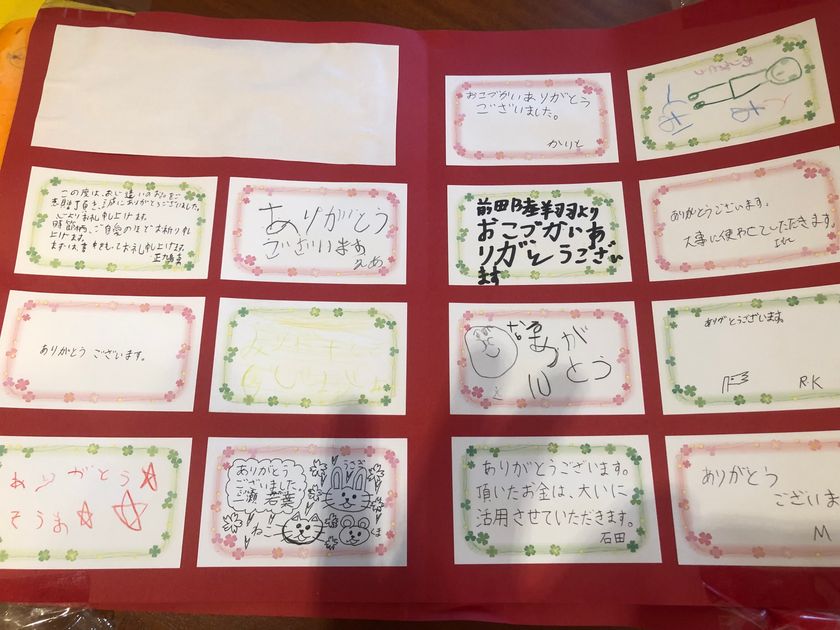 おこづかいありがとう
ございました。
かりと
ありがとう
この度は、お心遣いのお金をご
ありがとうございました。
心よりお礼申し上げます。
時節柄、ご自愛のほどお祈り申し
上げます。
まずは書中をもってお礼申し上げます。
ありがとう
ございます
えめ
前田
より
おこづかいあ
りがとうござい
ます
ありがとうございます。
大事に使わせていただきます。
ありがとう ございます。
ありがとう
ありがとうございます。
R.K
ありがとう
そうま
ありがとう
ございました
三瀬 若葉
うさぎ
ねこ
ありがとうございます。
頂いたお金は、大いに
活用させていただきます。
石田
ありがとう
ございま
M